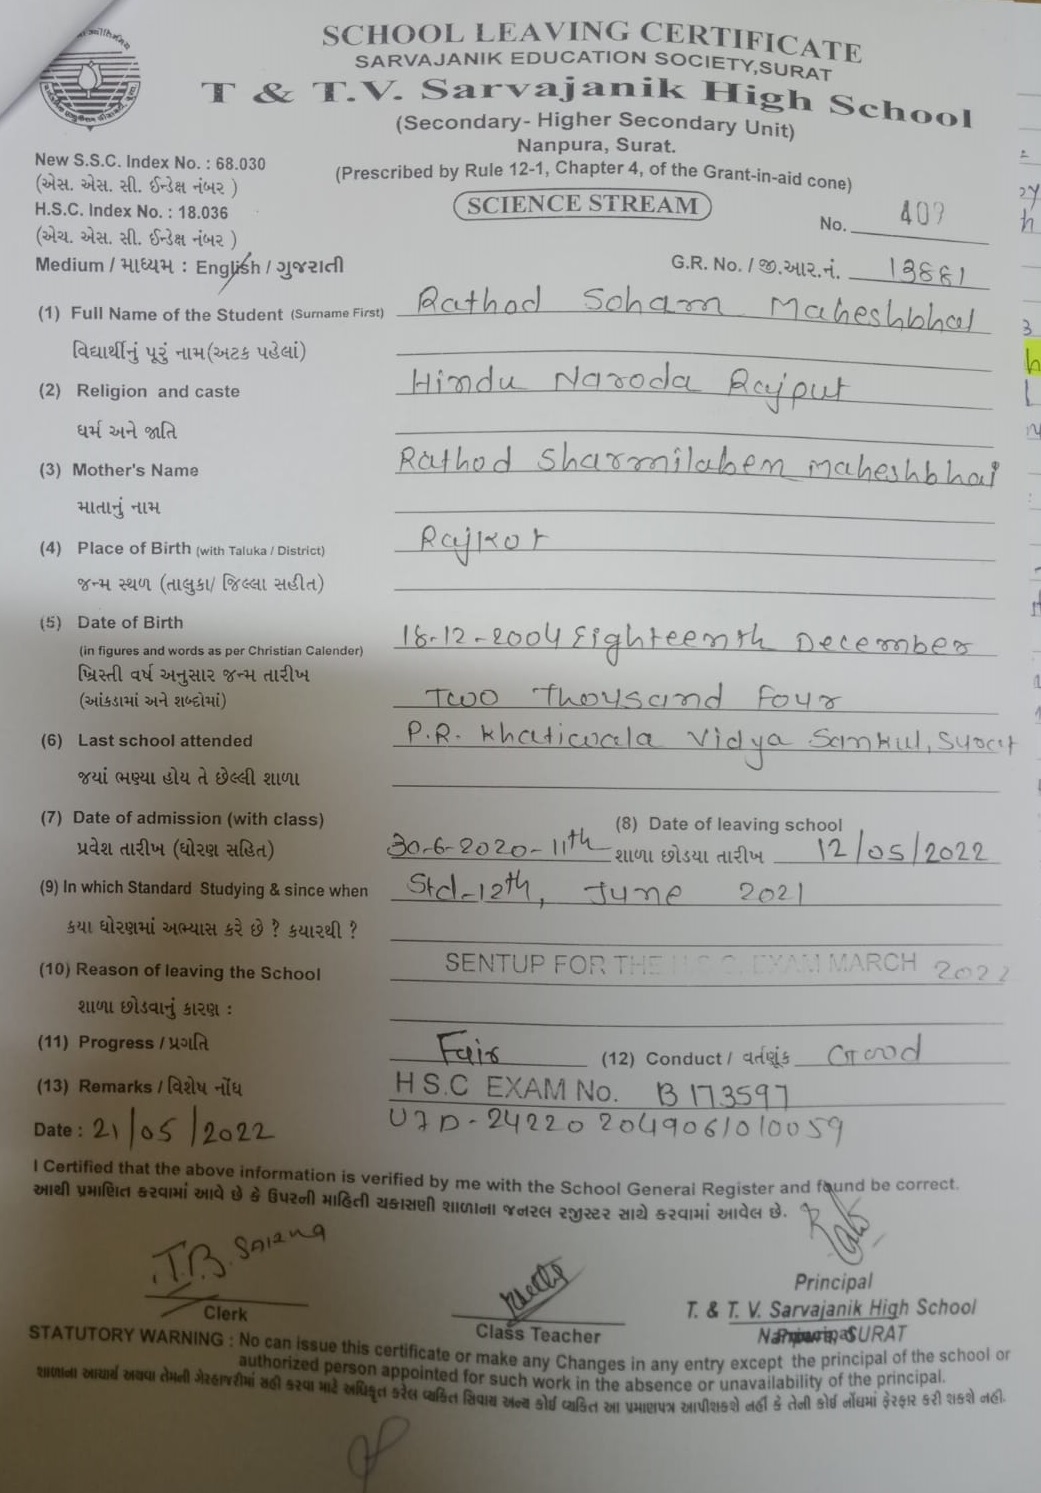 SCHOOL LEAVING CERTIFICATE
SARVAJANIK EDUCATION SOCIETY,SURAT
T & T.V. Sarvajanik High School
(Secondary- Higher Secondary Unit)
Nanpura, Surat.
(Prescribed by Rule 12-1, Chapter 4, of the Grant-in-aid cone)
New S.S.C. Index No. : 68.030
(એસ. એસ. સી. ઈન્ડેક્ષ નંબર )
H.S.C. Index No. : 18.036
(એચ. એસ. સી. ઈન્ડેક્ષ નંબર )
SCIENCE STREAM
No. 407
Medium / માધ્યમ : English / ગુજરાતી
G.R. No. / જી.આર.નં. 13881
(1) Full Name of the Student (Surname First) Rathod Soham Maheshbhai
વિદ્યાર્થીનું પૂરું નામ(અટક પહેલાં)
(2) Religion and caste Hindu Naroda Rajput
ધર્મ અને જાતિ
(3) Mother's Name Rathod Sharmilaben Maheshbhai
માતાનું નામ
(4) Place of Birth (with Taluka / District) Rajkot
જન્મ સ્થળ (તાલુકા/ જિલ્લા સહીત)
(5) Date of Birth
(in figures and words as per Christian Calender) 18-12-2004 Eighteenth December
ખ્રિસ્તી વર્ષ અનુસાર જન્મ તારીખ
(આંકડામાં અને શબ્દોમાં) Two Thousand Four
(6) Last school attended P.R. Khatiwala Vidya Sankul, Surat
જયાં ભણ્યા હોય તે છેલ્લી શાળા
(7) Date of admission (with class) (8) Date of leaving school
પ્રવેશ તારીખ (ધોરણ સહિત) 30-6-2020-11th શાળા છોડયા તારીખ 12/05/2022
(9) In which Standard Studying & since when Std-12th, June 2021
કયા ધોરણમાં અભ્યાસ કરે છે ? કયારથી ?
(10) Reason of leaving the School SENTUP FOR THE H.S.C. EXAM MARCH 2022
શાળા છોડવાનું કારણ :
(11) Progress / પ્રગતિ Fair (12) Conduct / વર્તણુંક Good
(13) Remarks / વિશેષ નોંધ HSC EXAM No. B 173597
Date : 21/05/2022 UID-242202049061010059
I Certified that the above information is verified by me with the School General Register and found be correct.
આથી પ્રમાણિત કરવામાં આવે છે કે ઉપરની માહિતી ચકાસણી શાળાના જનરલ રજીસ્ટર સાથે કરવામાં આવેલ છે.
Clerk
Class Teacher
Principal
T. & T. V. Sarvajanik High School
SURAT
STATUTORY WARNING : No can issue this certificate or make any Changes in any entry except the principal of the school or
authorized person appointed for such work in the absence or unavailability of the principal.
શાળાના આચાર્ય અથવા તેમની ગેરહાજરીમાં સહી કરવા માટે અધિકૃત કરેલ વ્યકિત સિવાય અન્ય કોઈ વ્યકિત આ પ્રમાણપત્ર આપીશકશે નહીં કે તેની કોઈ નોંધમાં ફેરફાર કરી શકશે નહી.